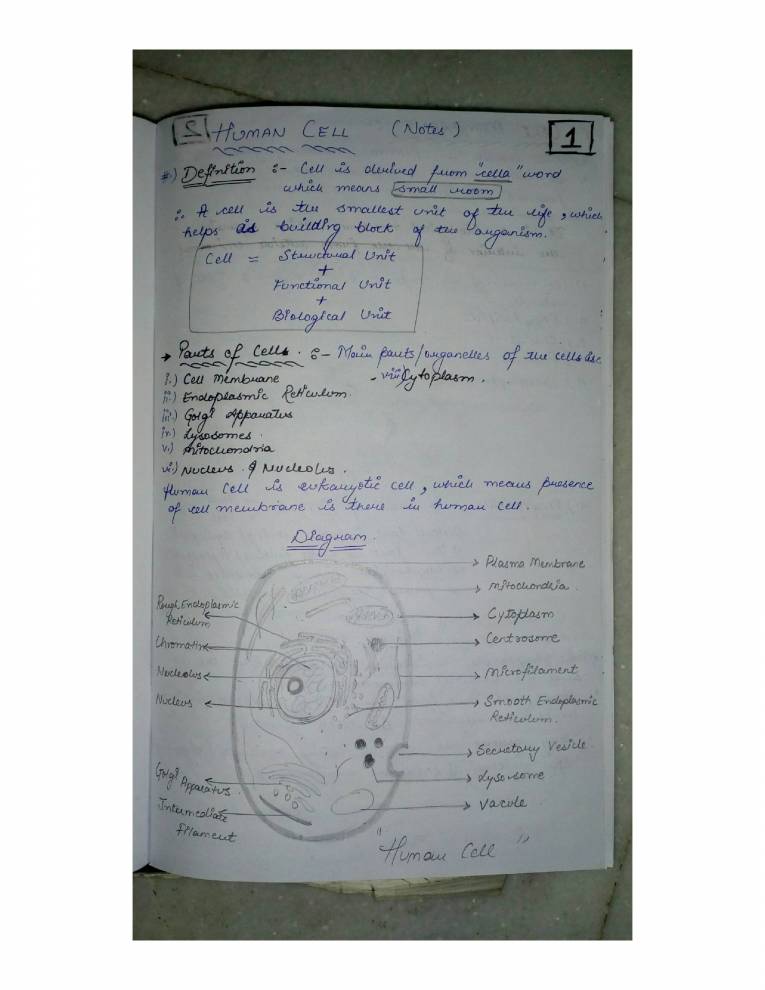 2 HUMAN CELL (Notes) 1
#.) Definition :- Cell is derived from "cella" word
which means small room
∴ A cell is the smallest unit of the life, which
helps as building block of the organism.
Cell = Structural Unit
+
Functional Unit
+
Biological Unit
→ Parts of Cells. :- Main parts/organelles of the cells are
i.) Cell Membrane
vii) Cytoplasm.
ii.) Endoplasmic Reticulum
iii.) Golgi Apparatus
iv.) Lysosomes.
v.) Mitochondria
vi.) Nucleus & Nucleolus.
Human Cell is eukaryotic cell, which means presence
of cell membrane is there in human cell.
Diagram
Plasma Membrane
Mitochondria
Rough Endoplasmic
Reticulum
Cytoplasm
Chromatin
Centrosome
Nucleolus
Microfilament
Nucleus
Smooth Endoplasmic
Reticulum.
Secretary Vesicle
Golgi Apparatus.
Lysosome
Intermediate
filament
Vacule
"Human Cell"